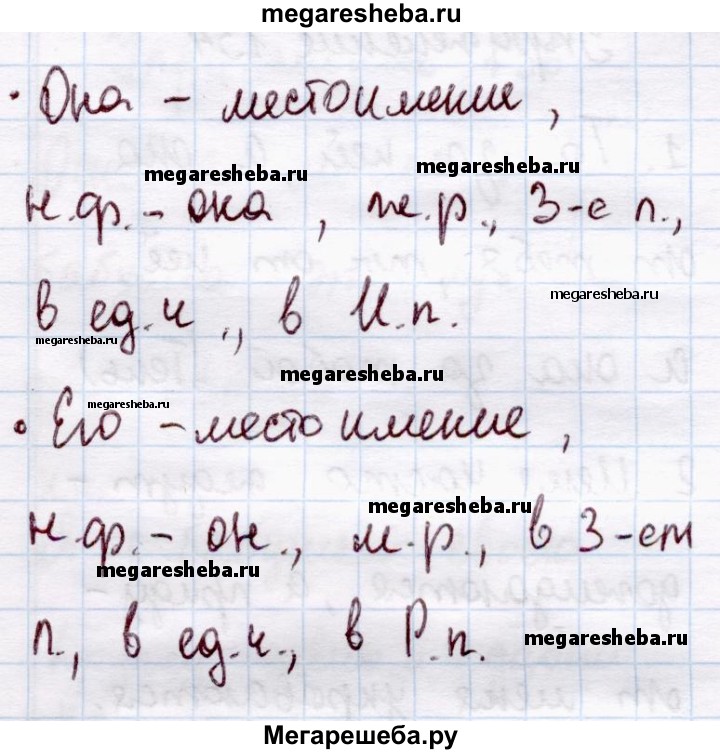 megaresheba.ru
• Она – местоимение,
megaresheba.ru megaresheba.ru
н.ф. – она, ж.р., 3-е л.,
megaresheba.ru
в ед.ч., в И.п.
megaresheba.ru
megaresheba.ru
megaresheba.ru
• Его – местоимение,
megaresheba.ru
н.ф. – он., м.р., в 3-ем
megaresheba.ru
л., в ед.ч., в Р.п.
megaresheba.ru
Мегарешеба.ру